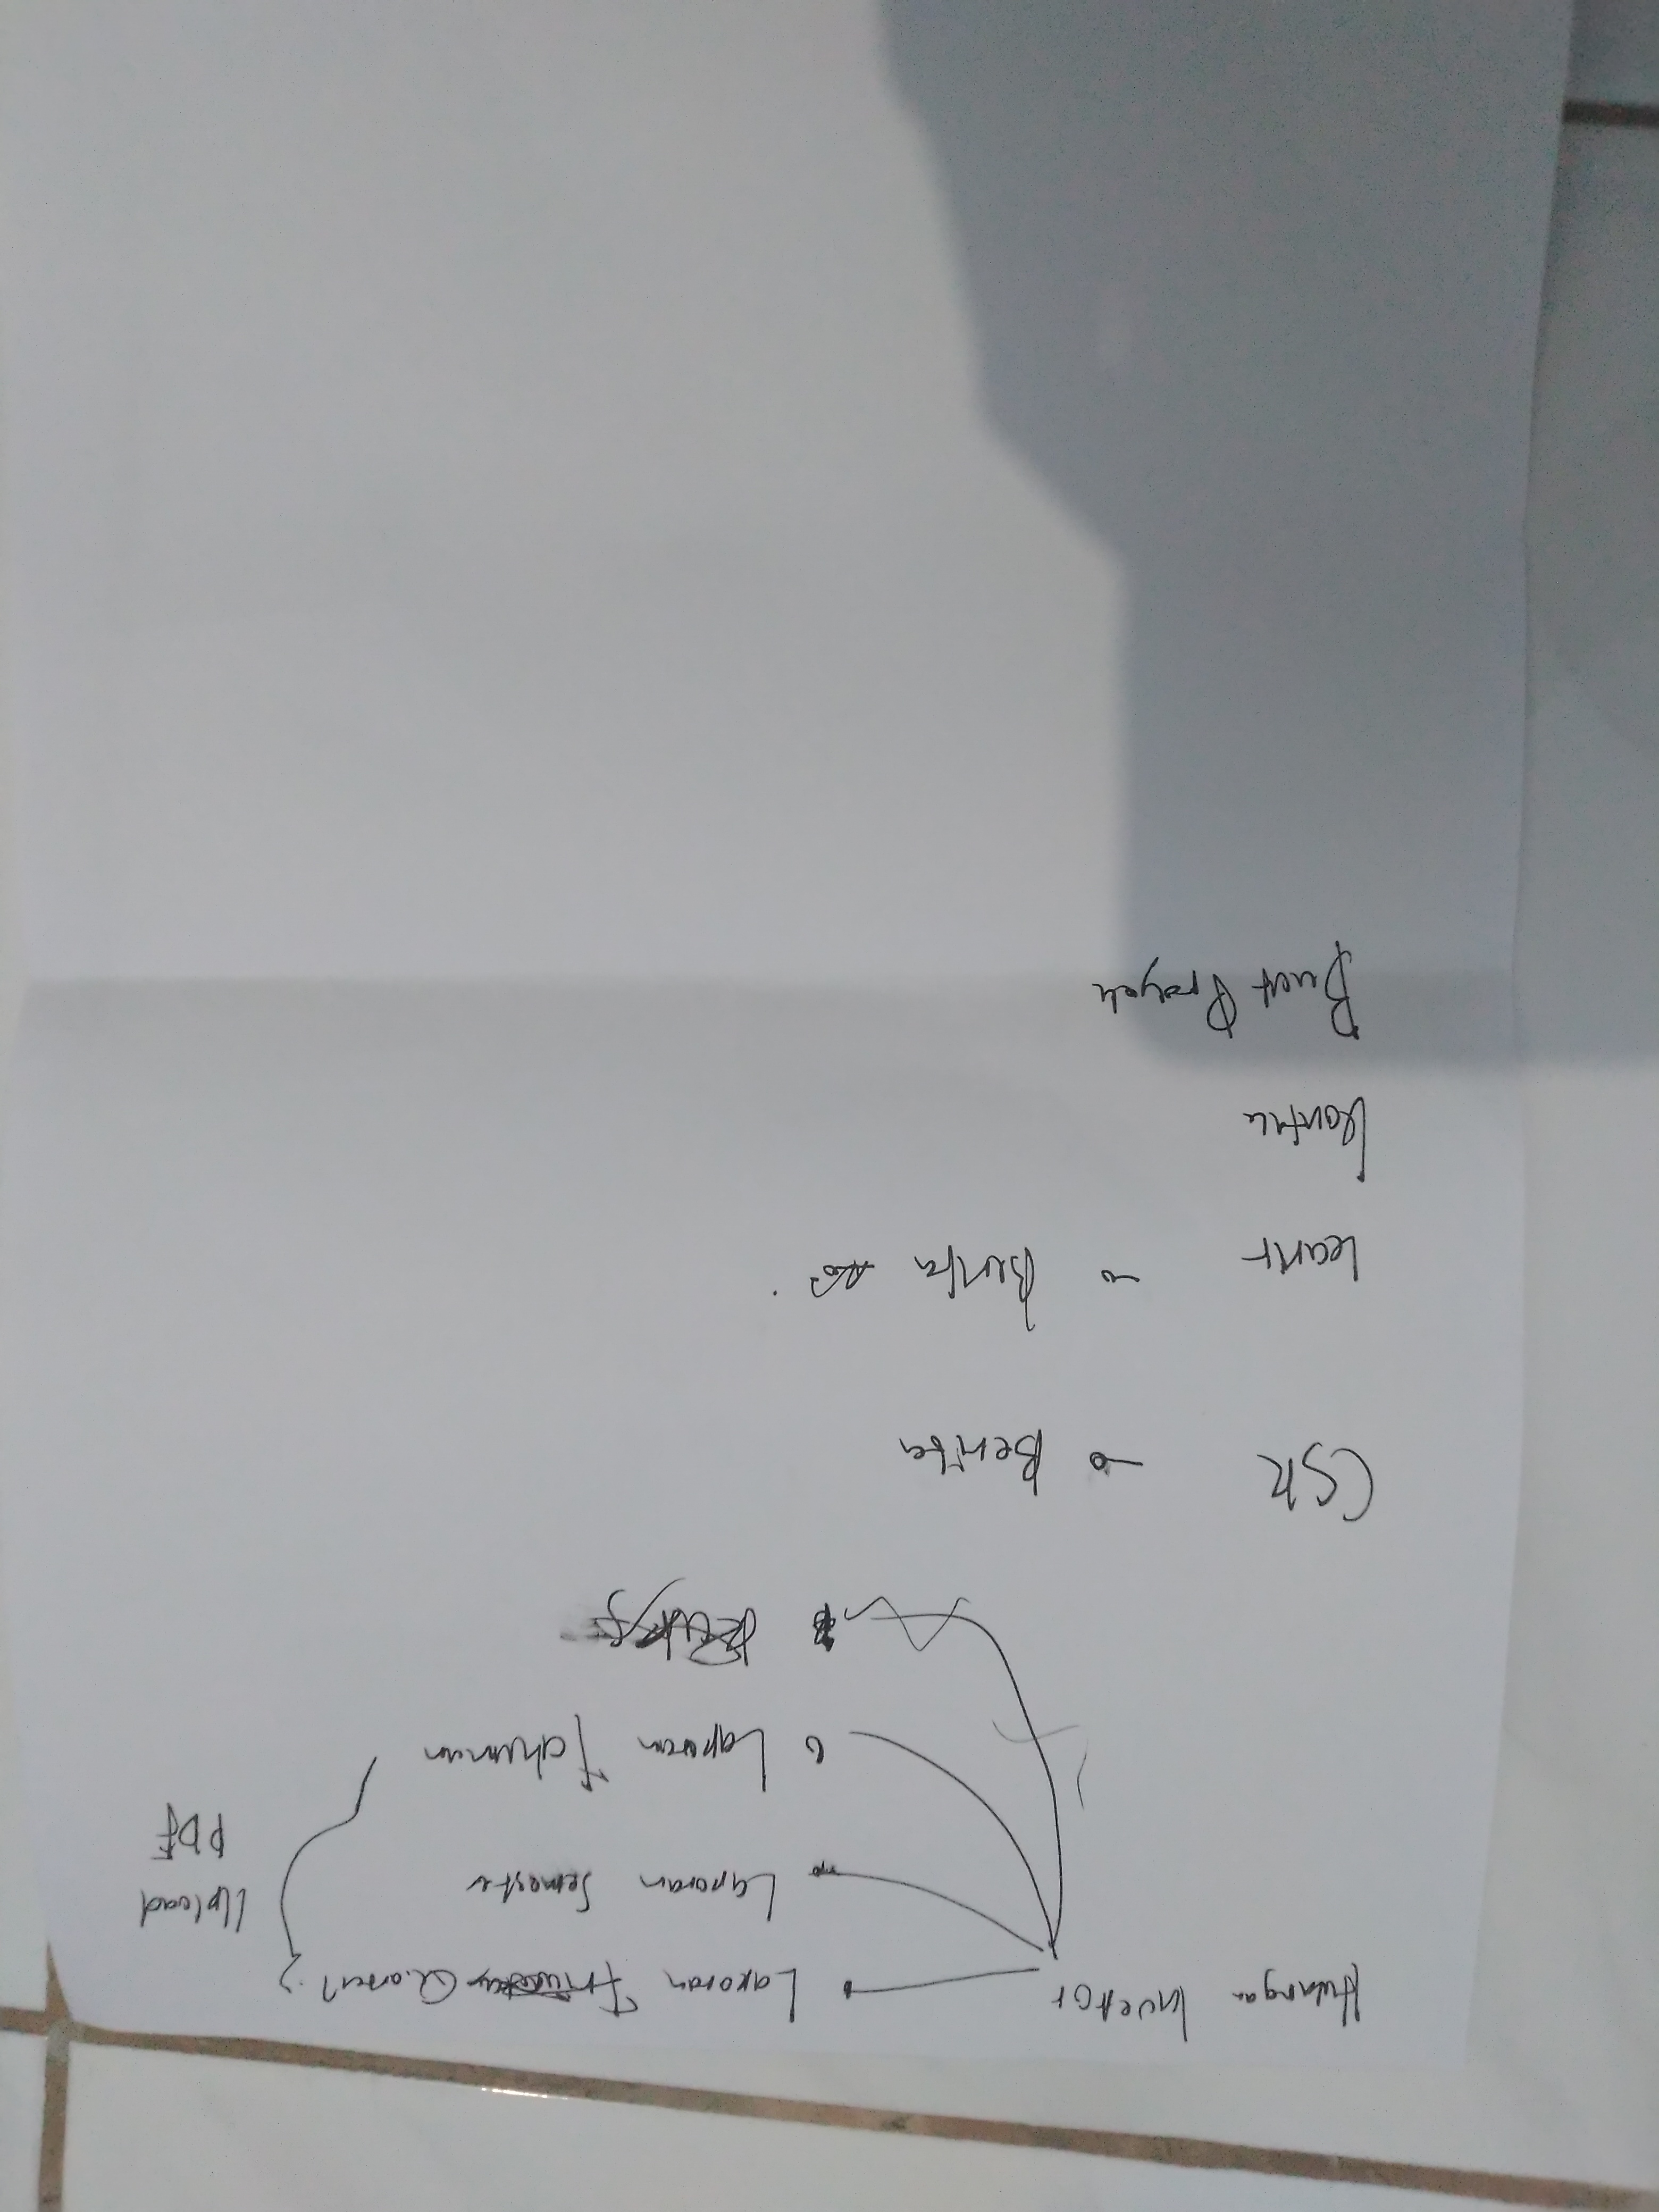 Hubungan Investor Laporan Quarter
Laporan Semester
Laporan Tahunan
Upload
PDF
CSR Berita
Karir Berita
Kontak
Buat Proyek